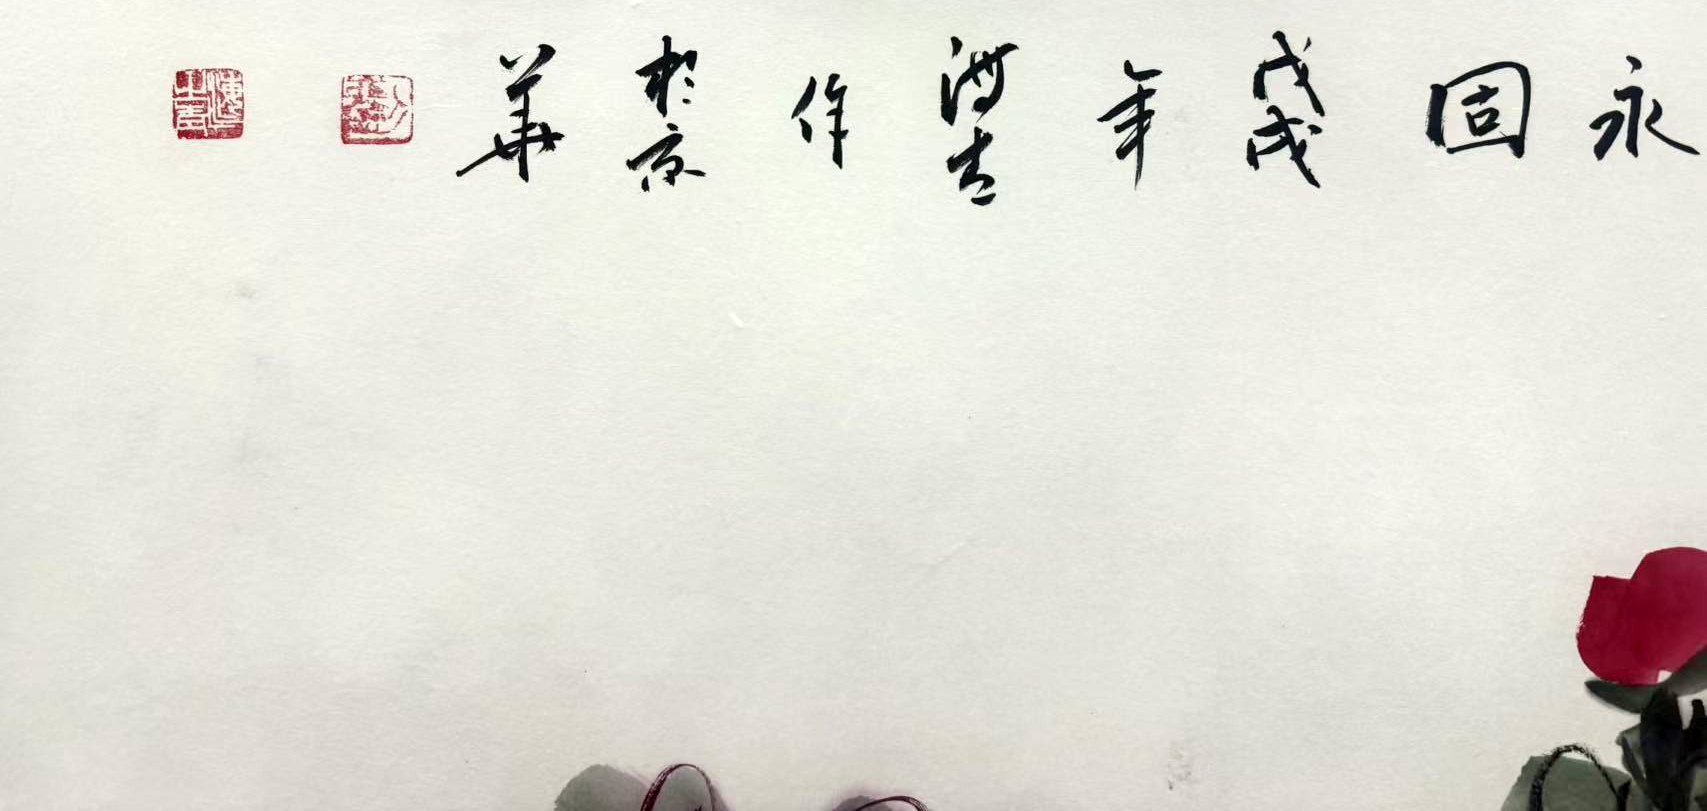 永固戊戌年作於京華